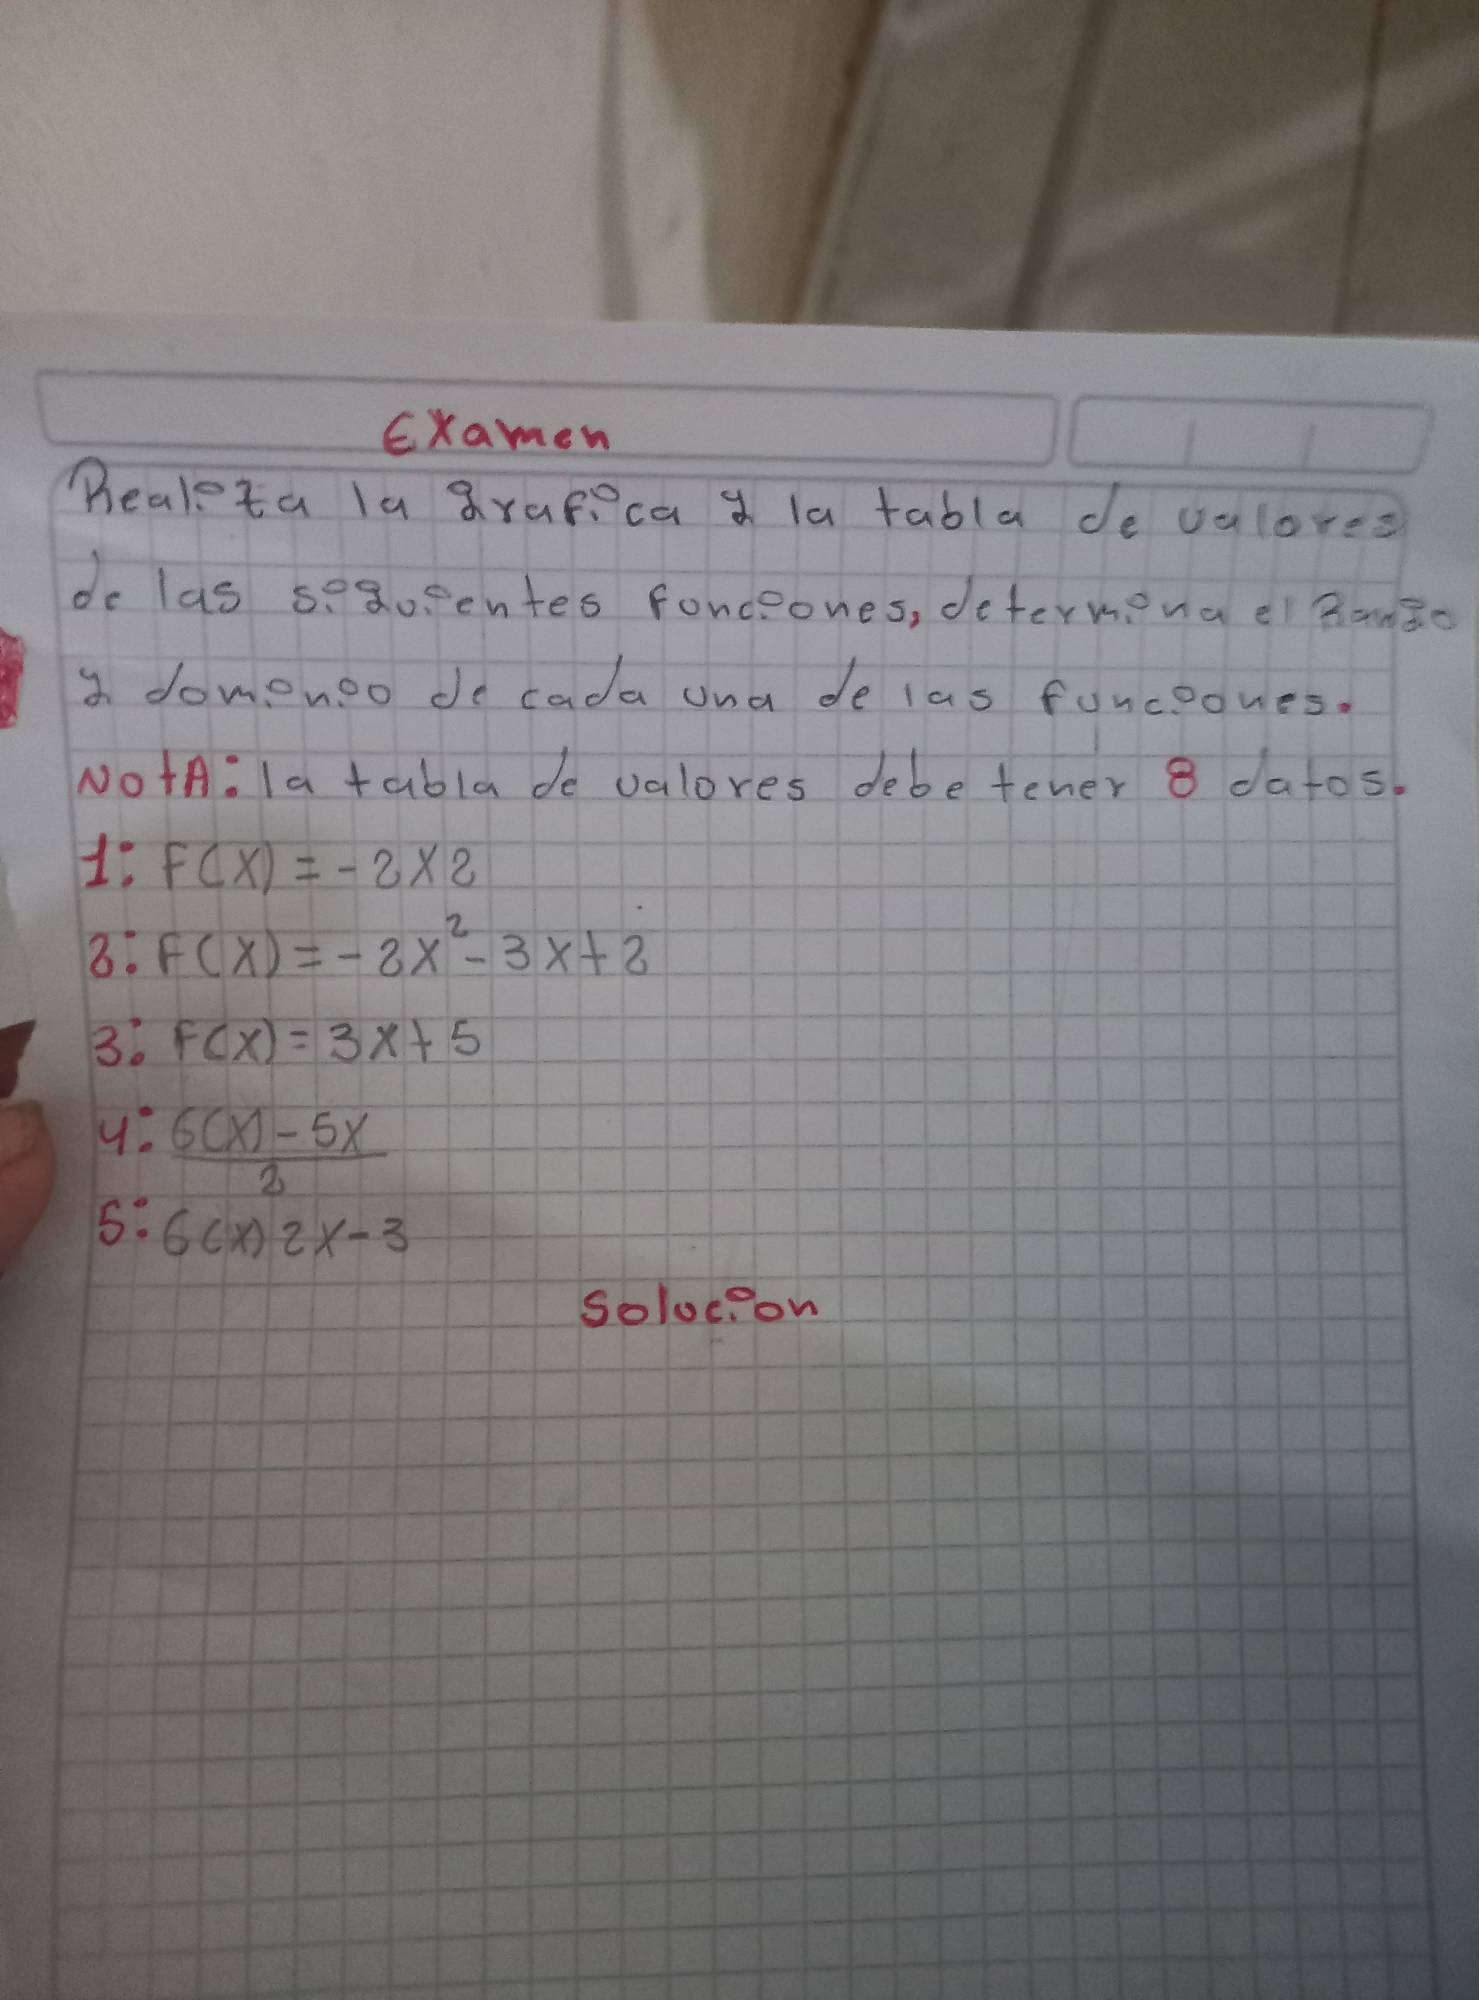 Examen
Realiza la grafica y la tabla de valores
de las siguientes funciones, determina el Rango
y dominio de cada una de las funciones.
NotA: la tabla de valores debe tener 8 datos.
1: F(X) = -2X2
2: F(X) = -2X² - 3X+2
3: F(X) = 3X+5
4: 6(X) - 5X
2
5: 6(X) 2X-3
Solucion